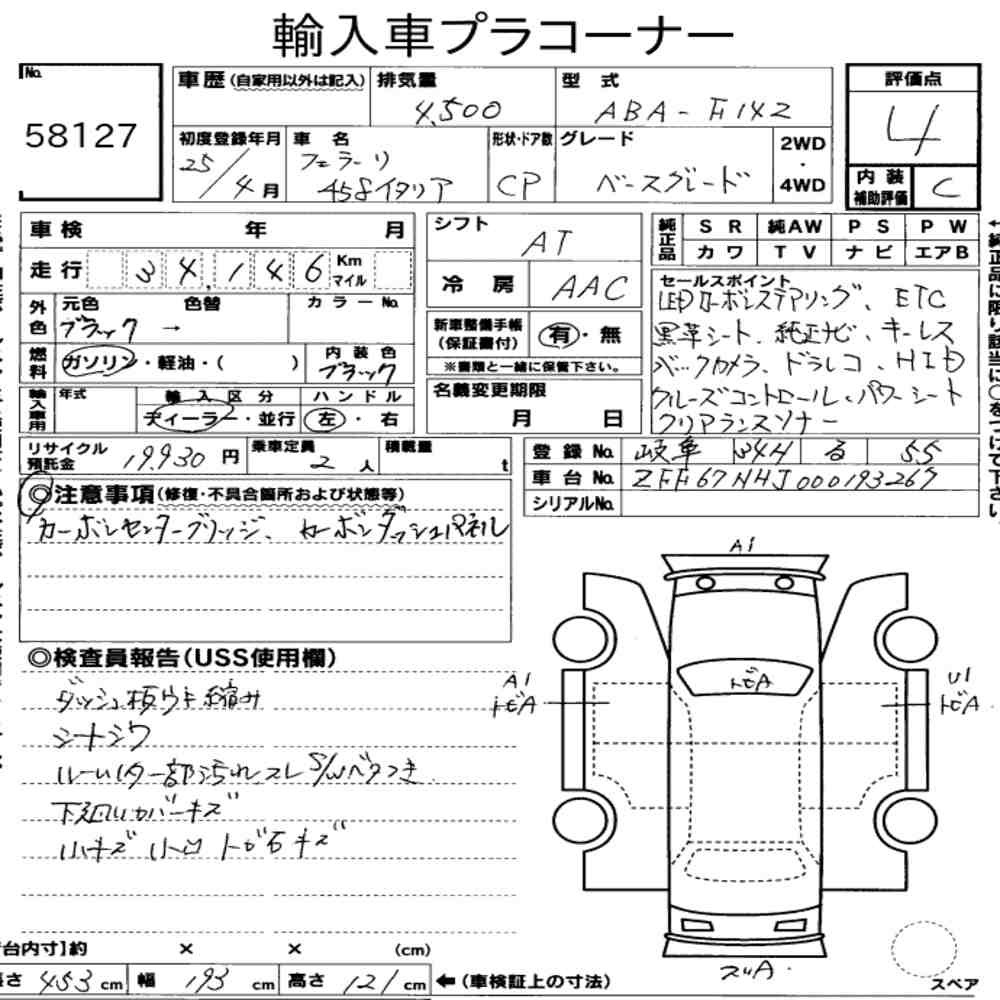 輸入車プラコーナー
No.
58127
車歴(自家用以外は記入)
排気量
4,500
型式
ABA-F142
評価点
4
初度登録年月
25/4月
車名
フェラーリ
458イタリア
形状・ドア数
CP
グレード
ベースグレード
2WD
・
4WD
内装
補助評価
C
車検 年 月
走行 34,146 Km マイル
外色
元色 色替 カラーNo.
ブラック →
燃料
ガソリン・軽油・( )
内装色
ブラック
輸入車用
年式
輸入区分
ディーラー・並行
ハンドル
左・右
シフト
AT
冷房
AAC
新車整備手帳
(保証書付)
有・無
※書類と一緒に保管下さい。
名義変更期限
月 日
純正品
SR 純AW PS PW
カワ TV ナビ エアB
セールスポイント
LEDカーボンステアリング、ETC
黒革シート、純正ナビ、キーレス
バックカメラ、ドラレコ、HID
クルーズコントロール、パワーシート
クリアランスソナー
リサイクル
預託金
19,930円
乗車定員
2人
積載量
t
登録No. 岐阜 34H る 55
車台No. ZFF67NHJ000193267
シリアルNo.
◎注意事項(修復・不具合箇所および状態等)
カーボンセンターブリッジ、カーボンダッシュパネル
◎検査員報告(USS使用欄)
ダッシュ板ウキ縮み
シートシワ
汚れスレ S/Wベタつき
下廻りカバーキズ
小キズ 小凹 トビ石キズ
A1
トビA
A1
トビA
U1
トビA
スリA
スペア
台内寸】約 × × (cm)
長さ 453 cm 幅 193 cm 高さ 121 cm ←(車検証上の寸法)